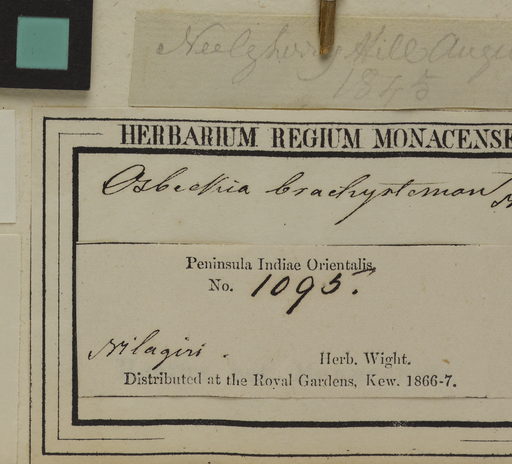 Neelgherry Hill Augu
1845
HERBARIUM REGIUM MONACENSE
Osbeckia brachystemon N
Peninsula Indiae Orientalis,
No. 1095.
Nilagiri.
Herb. Wight.
Distributed at the Royal Gardens, Kew. 1866-7.